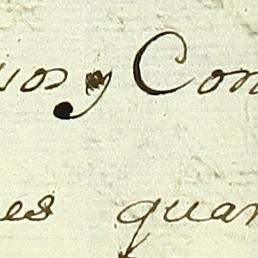 uos y Con
es quar